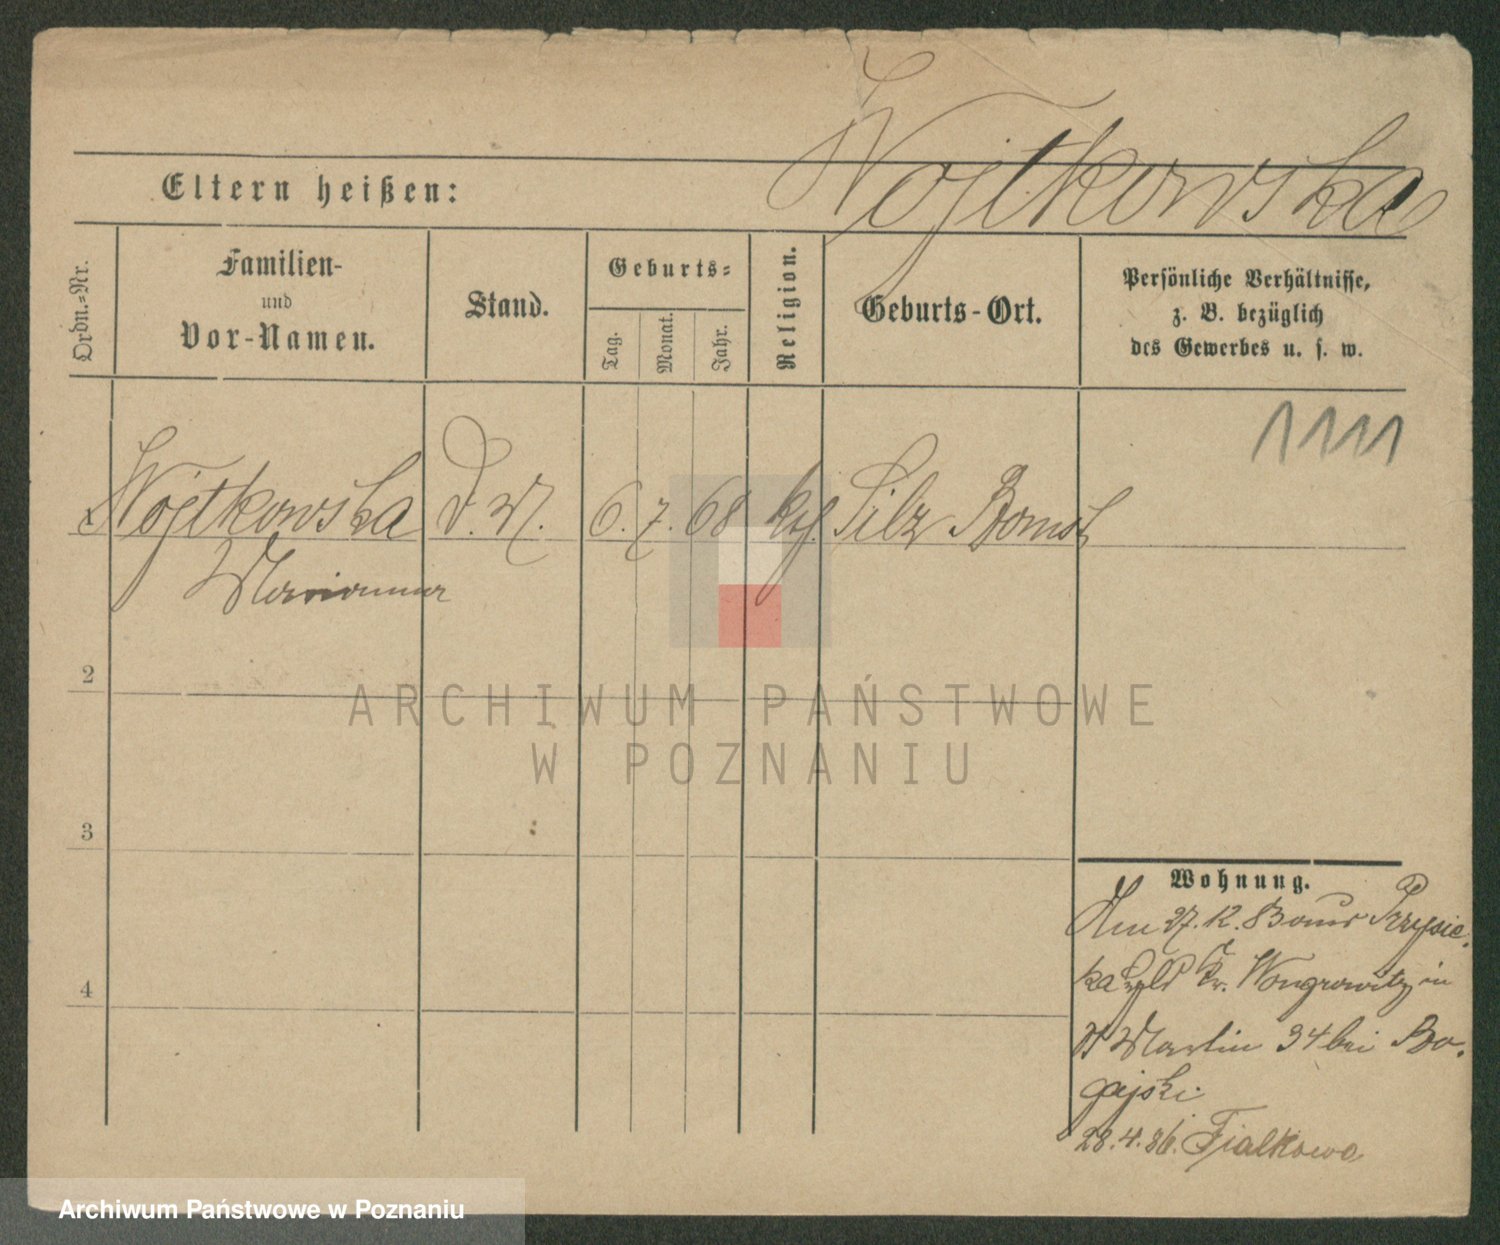 Wojtkowska
Eltern heißen:
Ordn.=Nr.
Familien-
und
Vor-Namen.
Stand.
Geburts=
Tag.
Monat.
Jahr.
Religion.
Geburts-Ort.
Persönliche Verhältnisse,
z. B. bezüglich
des Gewerbes u. s. w.
1111
1 Wojtkowska D. M. 6. 7. 68 kth. Silz Bomst
Marianna
2
3
4
Wohnung.
27. 12. Przysie-
ka Kr. Wongrowitz in
St Martin 34 bei Bo-
gajski
28.4.86. Fialkowo
ARCHIWUM PAŃSTWOWE
W POZNANIU
Archiwum Państwowe w Poznaniu